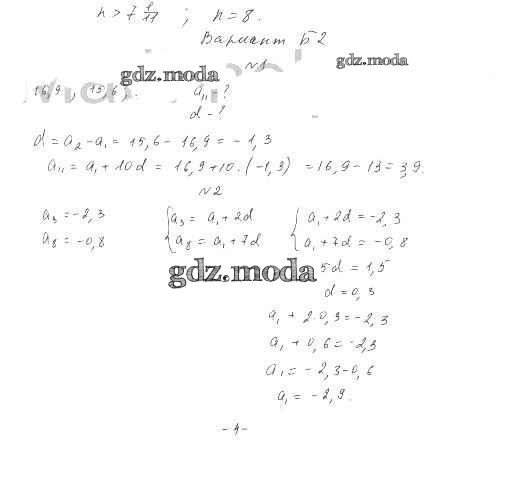 n > 7 1/17 ; n = 8.
Вариант Б2
№1
gdz.moda
gdz.moda
16,9 ; 15,6 ; . a₁₁ - ?
d - ?
d = a₂ - a₁ = 15,6 - 16,9 = -1,3
a₁₁ = a₁ + 10d = 16,9 + 10 · (-1,3) = 16,9 - 13 = 3,9.
№2
a₃ = -2,3 { a₃ = a₁ + 2d { a₁ + 2d = -2,3
a₈ = -0,8 a₈ = a₁ + 7d a₁ + 7d = -0,8
gdz.moda
5d = 1,5
d = 0,3
a₁ + 2·0,3 = -2,3
a₁ + 0,6 = -2,3
a₁ = -2,3 - 0,6
a₁ = -2,9.
-4-